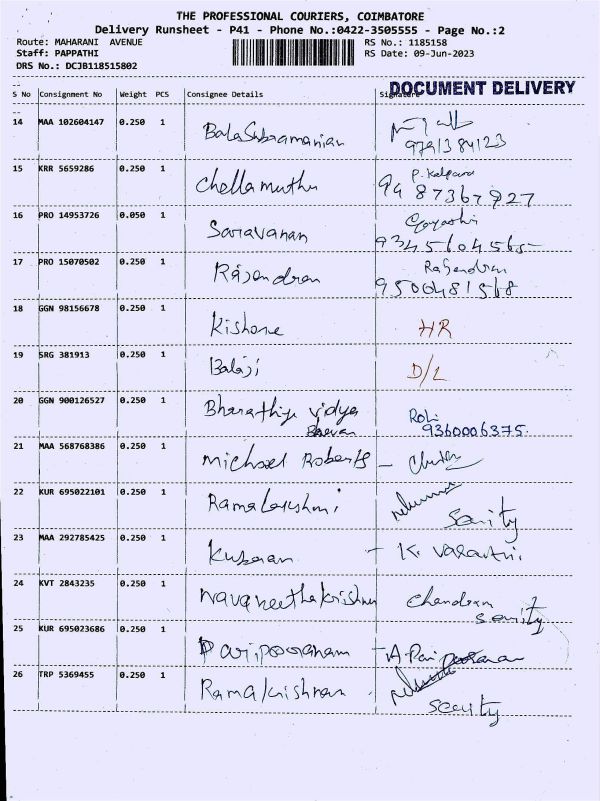 THE PROFESSIONAL COURIERS, COIMBATORE
Delivery Runsheet - P41 - Phone No.:0422-3505555 - Page No.:2
Route: MAHARANI AVENUE RS No.: 1185158
Staff: PAPPATHI RS Date: 09-Jun-2023
DRS No.: DCJB118515802
DOCUMENT DELIVERY
S No Consignment No Weight PCS Consignee Details Signature
14 MAA 102604147 0.250 1 BalaSubramanian
9791384123
15 KRR 5659286 0.250 1 Chellamuthu P. Kalpana
94 87367927
16 PRO 14953726 0.050 1 Saravanan Gayathri
9345604565
17 PRO 15070502 0.250 1 Rajendran Rajendran
9500481568
18 GGN 98156678 0.250 1 Kishore HR
19 SRG 381913 0.250 1 Balaji D/L
20 GGN 900126527 0.250 1 Bharathiya vidya Bhavan Roli
9360006375
21 MAA 568768386 0.250 1 Michael Roberts -
22 KUR 695022101 0.250 1 Ramalakshmi
Scurity
23 MAA 292785425 0.250 1 Kumaran - K. Vasanthi
24 KVT 2843235 0.250 1 Navaneethakrishnan Chandran
Scurity
25 KUR 695023686 0.250 1 Paripooranam - A Paripooranan
26 TRP 5369455 0.250 1 Ramakrishnan
Scurity